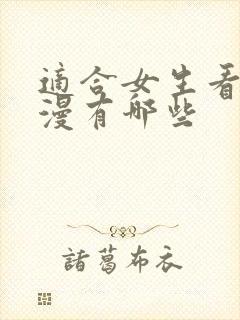 適合女生看
漫有哪些
諸葛布衣